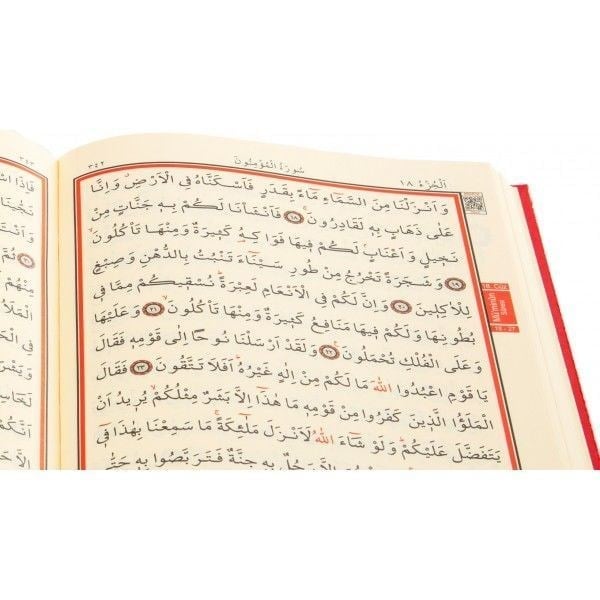 ٣٤٢
سُورَةُ الْمُؤْمِنُونَ
اَلْجُزْءُ ١٨
وَاَنْزَلْنَا مِنَ السَّمَٓاءِ مَٓاءً بِقَدَرٍ فَاَسْكَنَّاهُ فِي الْاَرْضِ وَاِنَّا
عَلٰى ذَهَابٍ بِهٖ لَقَادِرُونَ ١٨ فَاَنْشَاْنَا لَكُمْ بِهٖ جَنَّاتٍ مِنْ
نَخٖيلٍ وَاَعْنَابٍ لَكُمْ فٖيهَا فَوَاكِهُ كَثٖيرَةٌ وَمِنْهَا تَاْكُلُونَ
١٩ وَشَجَرَةً تَخْرُجُ مِنْ طُورِ سَيْنَٓاءَ تَنْبُتُ بِالدُّهْنِ وَصِبْغٍ
لِلْاٰكِلٖينَ ٢٠ وَاِنَّ لَكُمْ فِي الْاَنْعَامِ لَعِبْرَةً نُسْقٖيكُمْ مِمَّا فٖي
بُطُونِهَا وَلَكُمْ فٖيهَا مَنَافِعُ كَثٖيرَةٌ وَمِنْهَا تَاْكُلُونَ ٢١ وَعَلَيْهَا
وَعَلَى الْفُلْكِ تُحْمَلُونَ ٢٢ وَلَقَدْ اَرْسَلْنَا نُوحاً اِلٰى قَوْمِهٖ فَقَالَ
يَا قَوْمِ اعْبُدُوا اللّٰهَ مَا لَكُمْ مِنْ اِلٰهٍ غَيْرُهُ اَفَلَا تَتَّقُونَ ٢٣ فَقَالَ
الْمَلَؤُا الَّذٖينَ كَفَرُوا مِنْ قَوْمِهٖ مَا هٰذَٓا اِلَّا بَشَرٌ مِثْلُكُمْ يُرٖيدُ اَنْ
يَتَفَضَّلَ عَلَيْكُمْ وَلَوْ شَٓاءَ اللّٰهُ لَاَنْزَلَ مَلٰٓئِكَةً مَا سَمِعْنَا بِهٰذَا فٖٓي
رَجُلٌ بِهٖ جِنَّةٌ فَتَرَبَّصُوا بِهٖ حَتّٰى
18. Cüz
Mü'minûn
Sûresi
18 - 27
٣٤٣